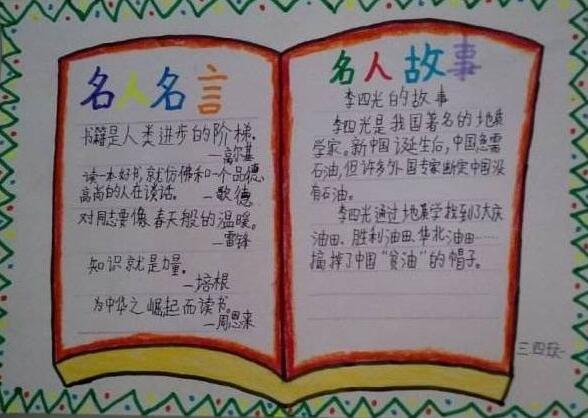 名人名言
书籍是人类进步的阶梯。
—高尔基
读一本好书,就仿佛和一个品德
高尚的人在谈话。—歌德
对同志要像春天般的温暖。
—雷锋
知识就是力量。
—培根
为中华之崛起而读书。
—周恩来
名人故事
李四光的故事
李四光是我国著名的地质
学家。新中国诞生后,中国急需
石油,但许多外国专家断定中国没
有石油。
李四光通过地质学找到了大庆
油田、胜利油田、华北油田……
摘掉了中国“贫油”的帽子。
三.四班